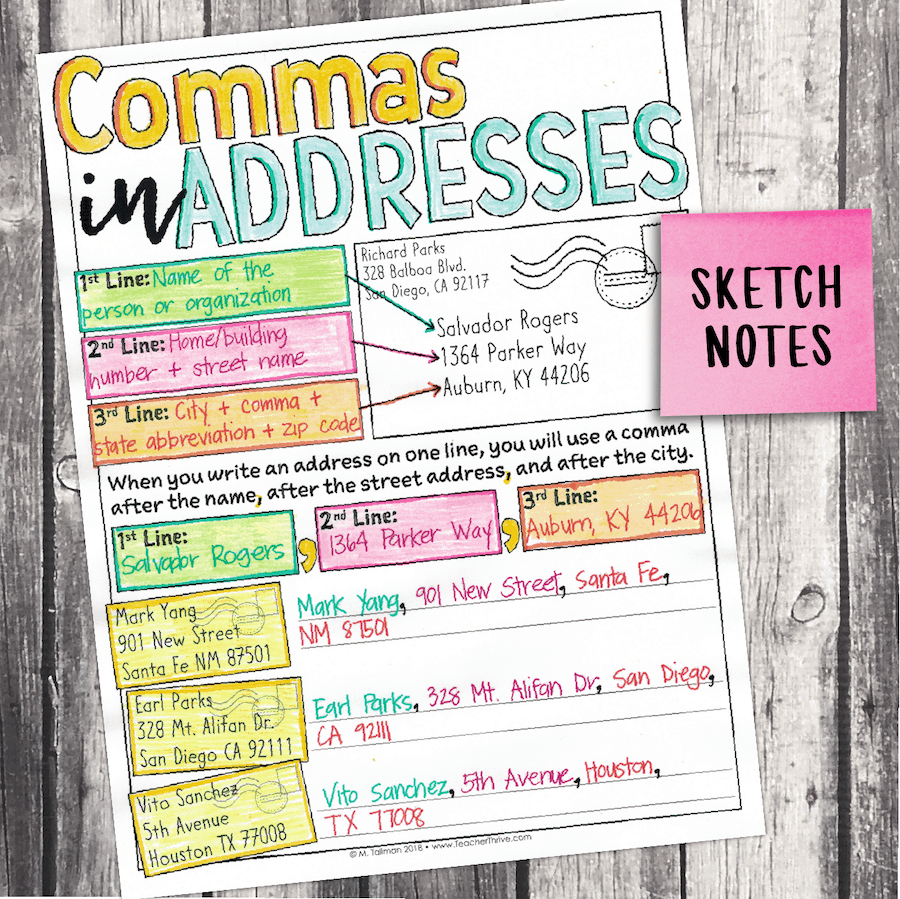 Commas
in ADDRESSES
1st Line: Name of the
person or organization
2nd Line: Home/building
number + street name
3rd Line: City + comma +
state abbreviation + zip code
Richard Parks
328 Balboa Blvd.
San Diego, CA 92117
Salvador Rogers
1364 Parker Way
Auburn, KY 44206
SKETCH
NOTES
When you write an address on one line, you will use a comma
after the name, after the street address, and after the city.
1st Line:
Salvador Rogers
,
2nd Line:
1364 Parker Way
,
3rd Line:
Auburn, KY 44206
Mark Yang
901 New Street
Santa Fe NM 87501
Mark Yang, 901 New Street, Santa Fe,
NM 87501
Earl Parks
328 Mt. Alifan Dr.
San Diego CA 92111
Earl Parks, 328 Mt. Alifan Dr, San Diego,
CA 92111
Vito Sanchez
5th Avenue
Houston TX 77008
Vito Sanchez, 5th Avenue, Houston,
TX 77008
© M. Tallman 2018 • www.TeacherThrive.com